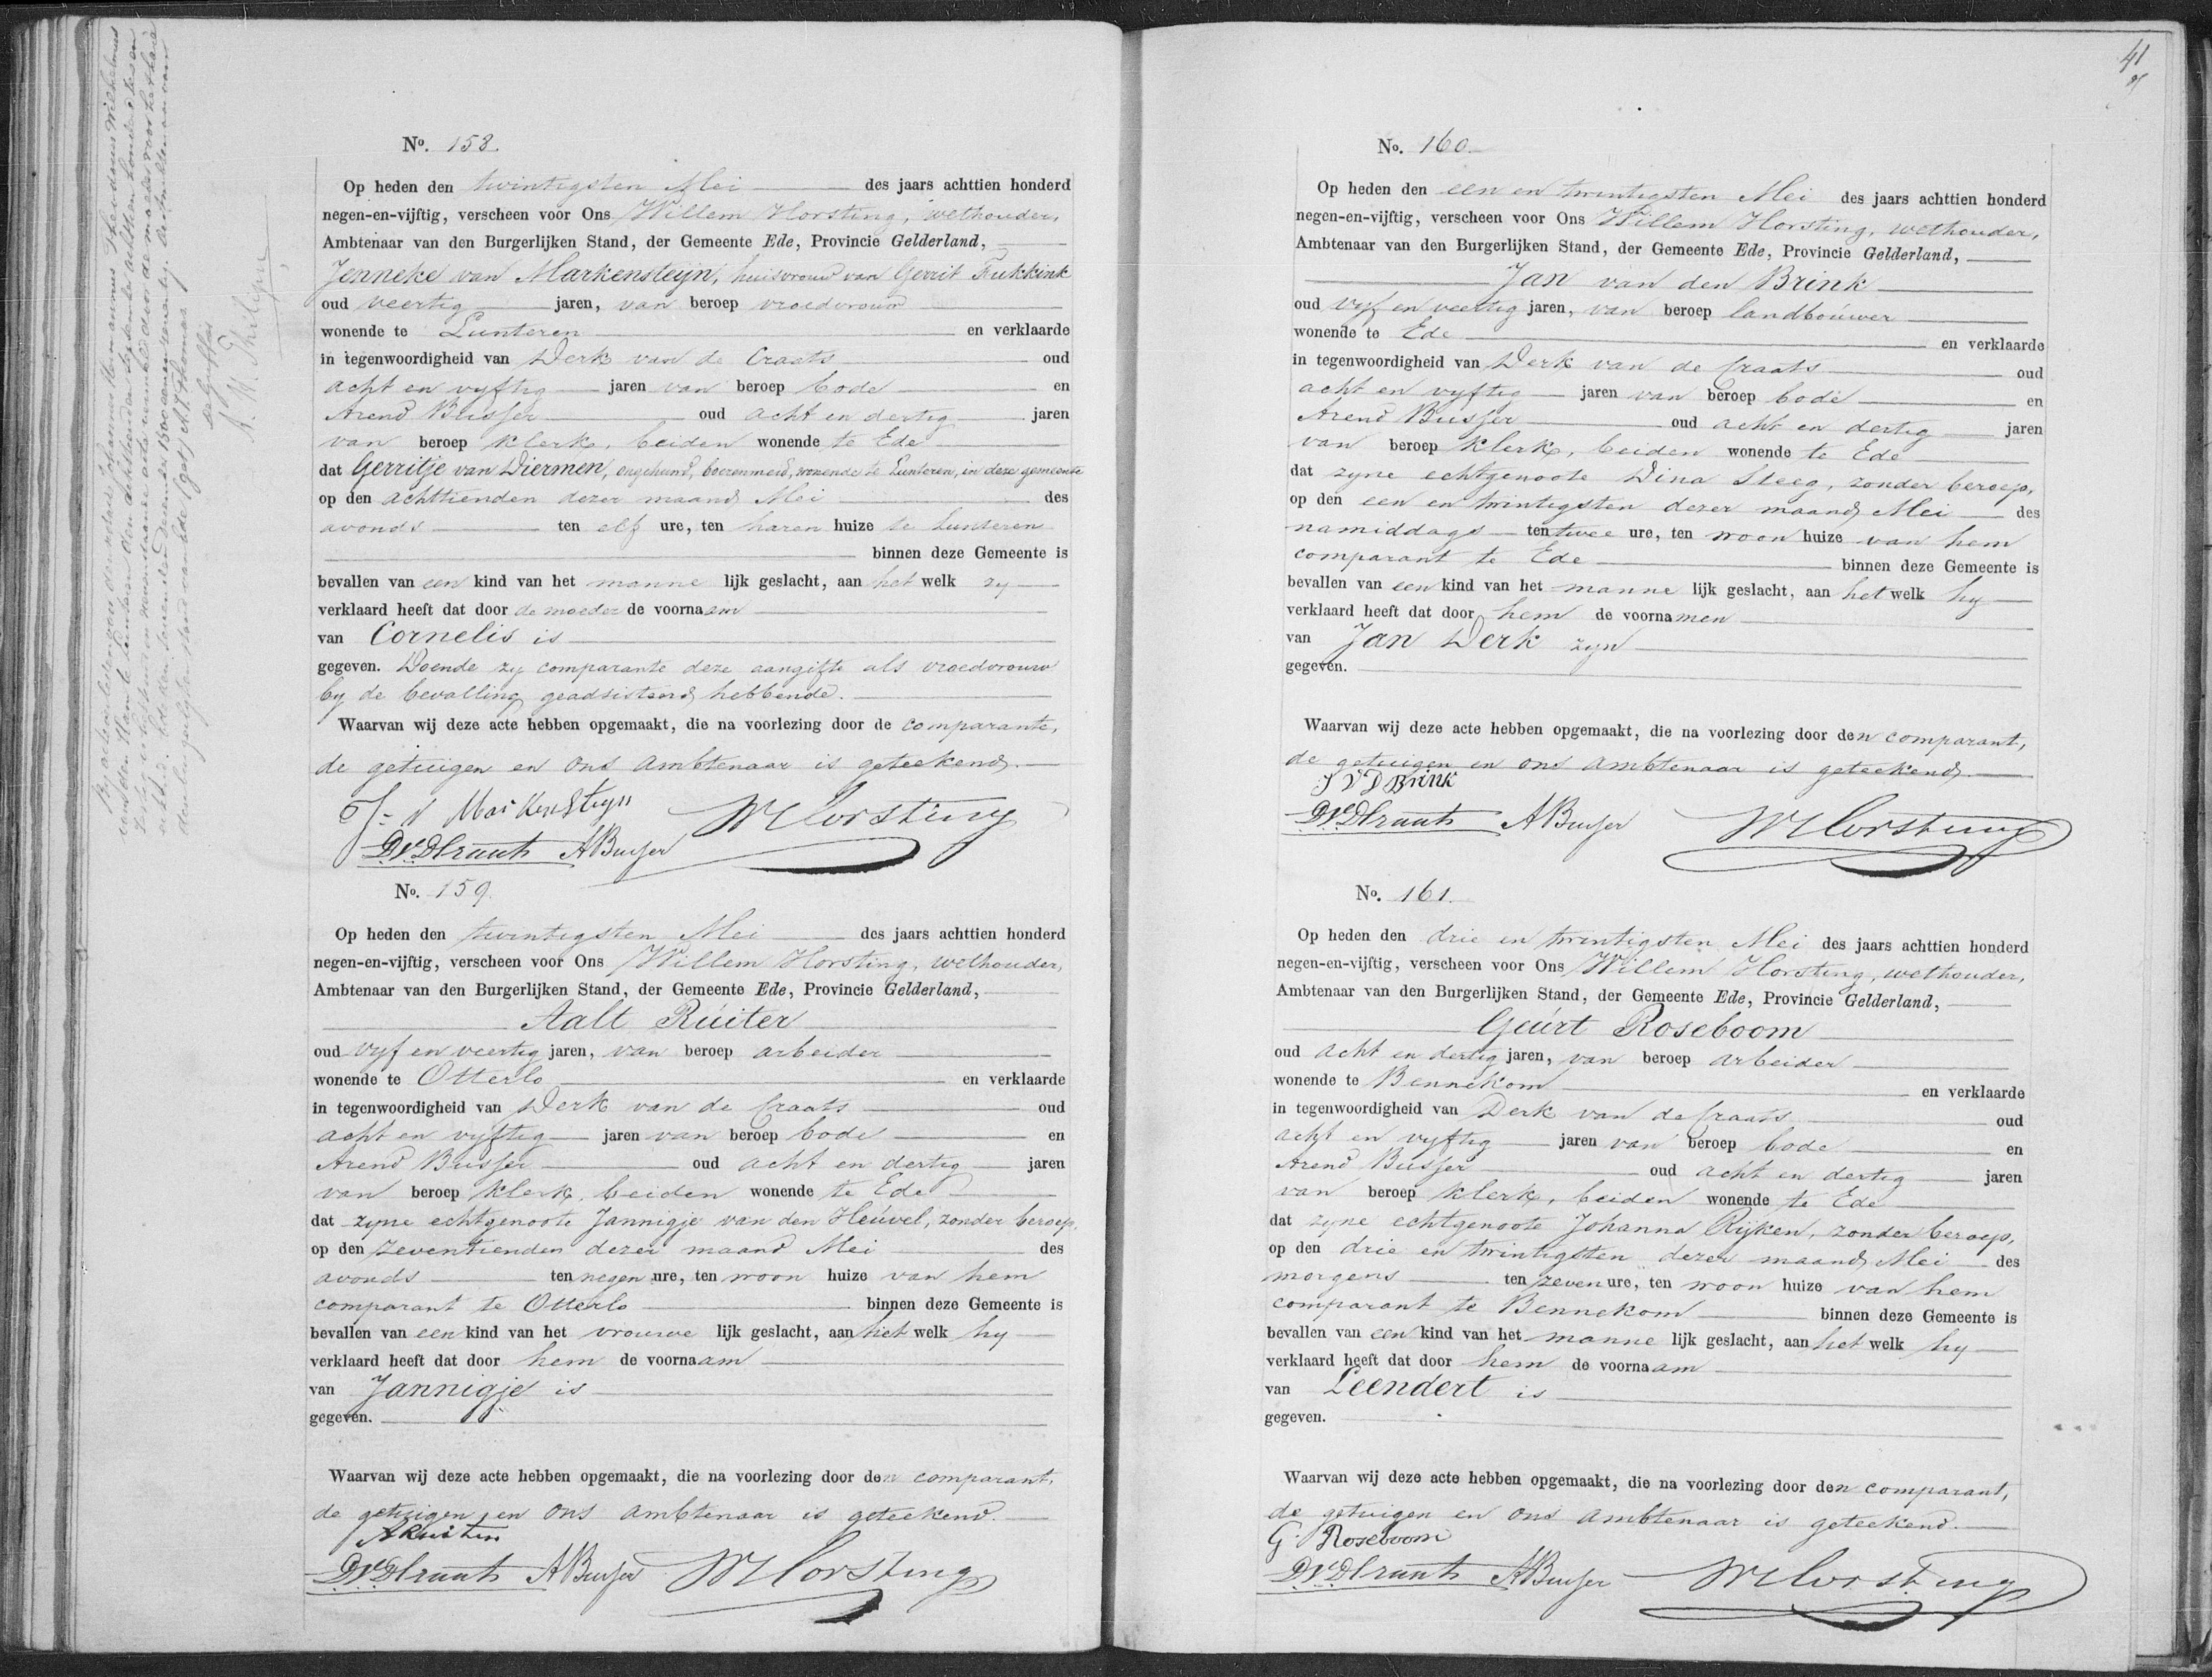 No. 158.
Op heden den twintigsten Mei des jaars achttien honderd
negen-en-vijftig, verscheen voor Ons Willem Horsting, wethouder,
Ambtenaar van den Burgerlijken Stand, der Gemeente Ede, Provincie Gelderland,
Jenneke van Markensteijn, huisvrouw van Gerrit Fukkink
oud veertig jaren, van beroep vroedvrouw
wonende te Lunteren en verklaarde
in tegenwoordigheid van Derk van de Craats oud
acht en vyftig jaren van beroep bode en
Arend Busser oud acht en dertig jaren
van beroep klerk, beiden wonende te Ede
dat Gerritje van Diermen, ongehuwd, boerenmeid, wonende te Lunteren, in deze gemeente
op den achttienden dezer maand Mei des
avonds ten elf ure, ten haren huize te Lunteren
binnen deze Gemeente is
bevallen van een kind van het manne lijk geslacht, aan het welk zy
verklaard heeft dat door de moeder de voornaam
van Cornelis is
gegeven. Doende zy comparante deze aangifte als vroedvrouw
by de bevalling geadsisteerd hebbende.
Waarvan wij deze acte hebben opgemaakt, die na voorlezing door de comparante,
de getuigen en ons ambtenaar is geteekend.
J v Markensteyn WHorsting
DvdCraats ABusser
No. 159.
Op heden den twintigsten Mei des jaars achttien honderd
negen-en-vijftig, verscheen voor Ons Willem Horsting, wethouder,
Ambtenaar van den Burgerlijken Stand, der Gemeente Ede, Provincie Gelderland,
Aalt Ruiter
oud vyf en veertig jaren, van beroep arbeider
wonende te Otterlo en verklaarde
in tegenwoordigheid van Derk van de Craats oud
acht en vyftig jaren van beroep bode en
Arend Busser oud acht en dertig jaren
van beroep klerk, beiden wonende te Ede
dat zyne echtgenoote Jannigje van den Heuvel, zonder beroep,
op den zeventienden dezer maand Mei des
avonds ten negen ure, ten woon huize van hem
comparant te Otterlo binnen deze Gemeente is
bevallen van een kind van het vrouwe lijk geslacht, aan het welk hy
verklaard heeft dat door hem de voornaam
van Jannigje is
gegeven.
Waarvan wij deze acte hebben opgemaakt, die na voorlezing door den comparant,
de getuigen en ons ambtenaar is geteekend.
A Ruiter
DvdCraats ABusser WHorsting
41
No. 160.
Op heden den een en twintigsten Mei des jaars achttien honderd
negen-en-vijftig, verscheen voor Ons Willem Horsting, wethouder,
Ambtenaar van den Burgerlijken Stand, der Gemeente Ede, Provincie Gelderland,
Jan van den Brink
oud vyf en veertig jaren, van beroep landbouwer
wonende te Ede en verklaarde
in tegenwoordigheid van Derk van de Craats oud
acht en vyftig jaren van beroep bode en
Arend Busser oud acht en dertig jaren
van beroep klerk, beiden wonende te Ede
dat zyne echtgenoote Dina Steeg, zonder beroep,
op den een en twintigsten dezer maand Mei des
namiddags ten twee ure, ten woon huize van hem
comparant te Ede binnen deze Gemeente is
bevallen van een kind van het manne lijk geslacht, aan het welk hy
verklaard heeft dat door hem de voornamen
van Jan Derk zyn
gegeven.
Waarvan wij deze acte hebben opgemaakt, die na voorlezing door den comparant,
de getuigen en ons ambtenaar is geteekend.
J V D Brink
DvdCraats ABusser WHorsting
No. 161.
Op heden den drie en twintigsten Mei des jaars achttien honderd
negen-en-vijftig, verscheen voor Ons Willem Horsting, wethouder,
Ambtenaar van den Burgerlijken Stand, der Gemeente Ede, Provincie Gelderland,
Geurt Roseboom
oud acht en dertig jaren, van beroep arbeider
wonende te Bennekom en verklaarde
in tegenwoordigheid van Derk van de Craats oud
acht en vyftig jaren van beroep bode en
Arend Busser oud acht en dertig jaren
van beroep klerk, beiden wonende te Ede
dat zyne echtgenoote Johanna Rijken, zonder beroep,
op den drie en twintigsten dezer maand Mei des
morgens ten zeven ure, ten woon huize van hem
comparant te Bennekom binnen deze Gemeente is
bevallen van een kind van het manne lijk geslacht, aan het welk hy
verklaard heeft dat door hem de voornaam
van Leendert is
gegeven.
Waarvan wij deze acte hebben opgemaakt, die na voorlezing door den comparant,
de getuigen en ons ambtenaar is geteekend.
G Roseboom
DvdCraats ABusser WHorsting